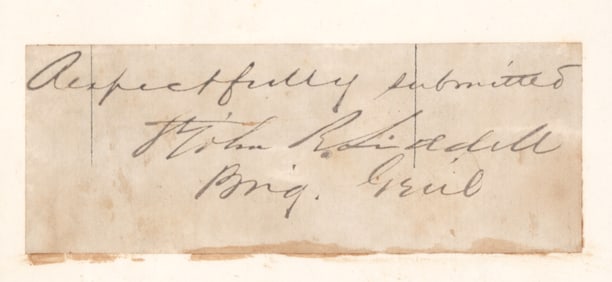 Respectfully submitted
St John R. Liddell
Brig. Genl